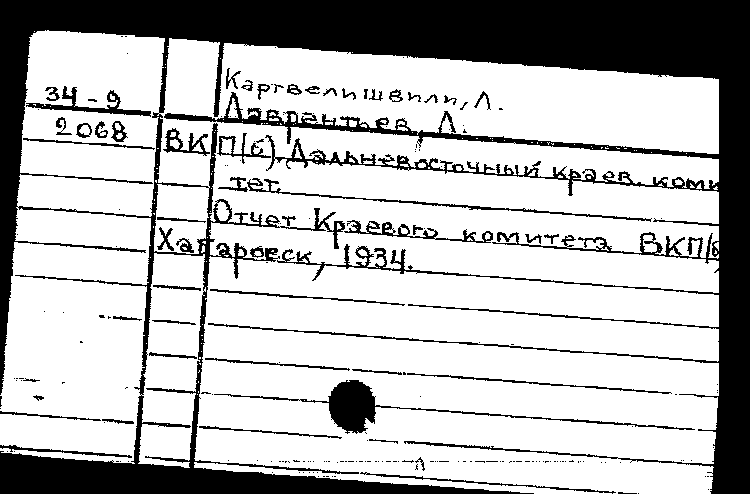 Картвелишвили, Л.
34-9
Лаврентьев, Л.
2068
ВКП(б). Дальневосточный краев. коми
тет.
Отчет Краевого комитета ВКП(б
Хабаровск, 1934.